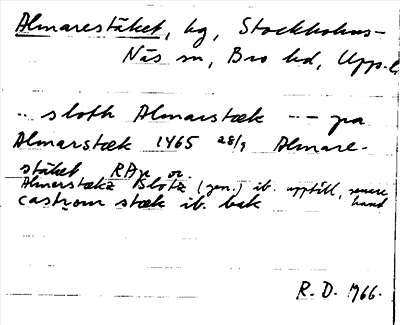 Almarestäket, hg, Stockholms-
Näs sn, Bro hd, Uppl.
.. sloth Almarstæk -- pa
Almarstæk 1465 28/9 Almare-
stäket RAp or.
Almerstækz Slotz (gen.) ib. upptill, senare hand
castrom stæk ib. bak
R. D. 1966.